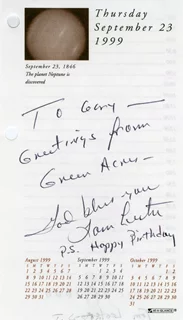 Thursday
September 23
1999
September 23, 1846
The planet Neptune is
discovered
To Gary —
Greetings from
Green Acres —
God bless you
Tom Lester
P.S. Happy Birthday
August 1999
S M T W T F S
1 2 3 4 5 6 7
8 9 10 11 12 13 14
15 16 17 18 19 20 21
22 23 24 25 26 27 28
29 30 31
September 1999
S M T W T F S
1 2 3 4
5 6 7 8 9 10 11
12 13 14 15 16 17 18
19 20 21 22 23 24 25
26 27 28 29 30
October 1999
S M T W T F S
1 2
3 4 5 6 7 8 9
10 11 12 13 14 15 16
17 18 19 20 21 22 23
24 25 26 27 28 29 30
31